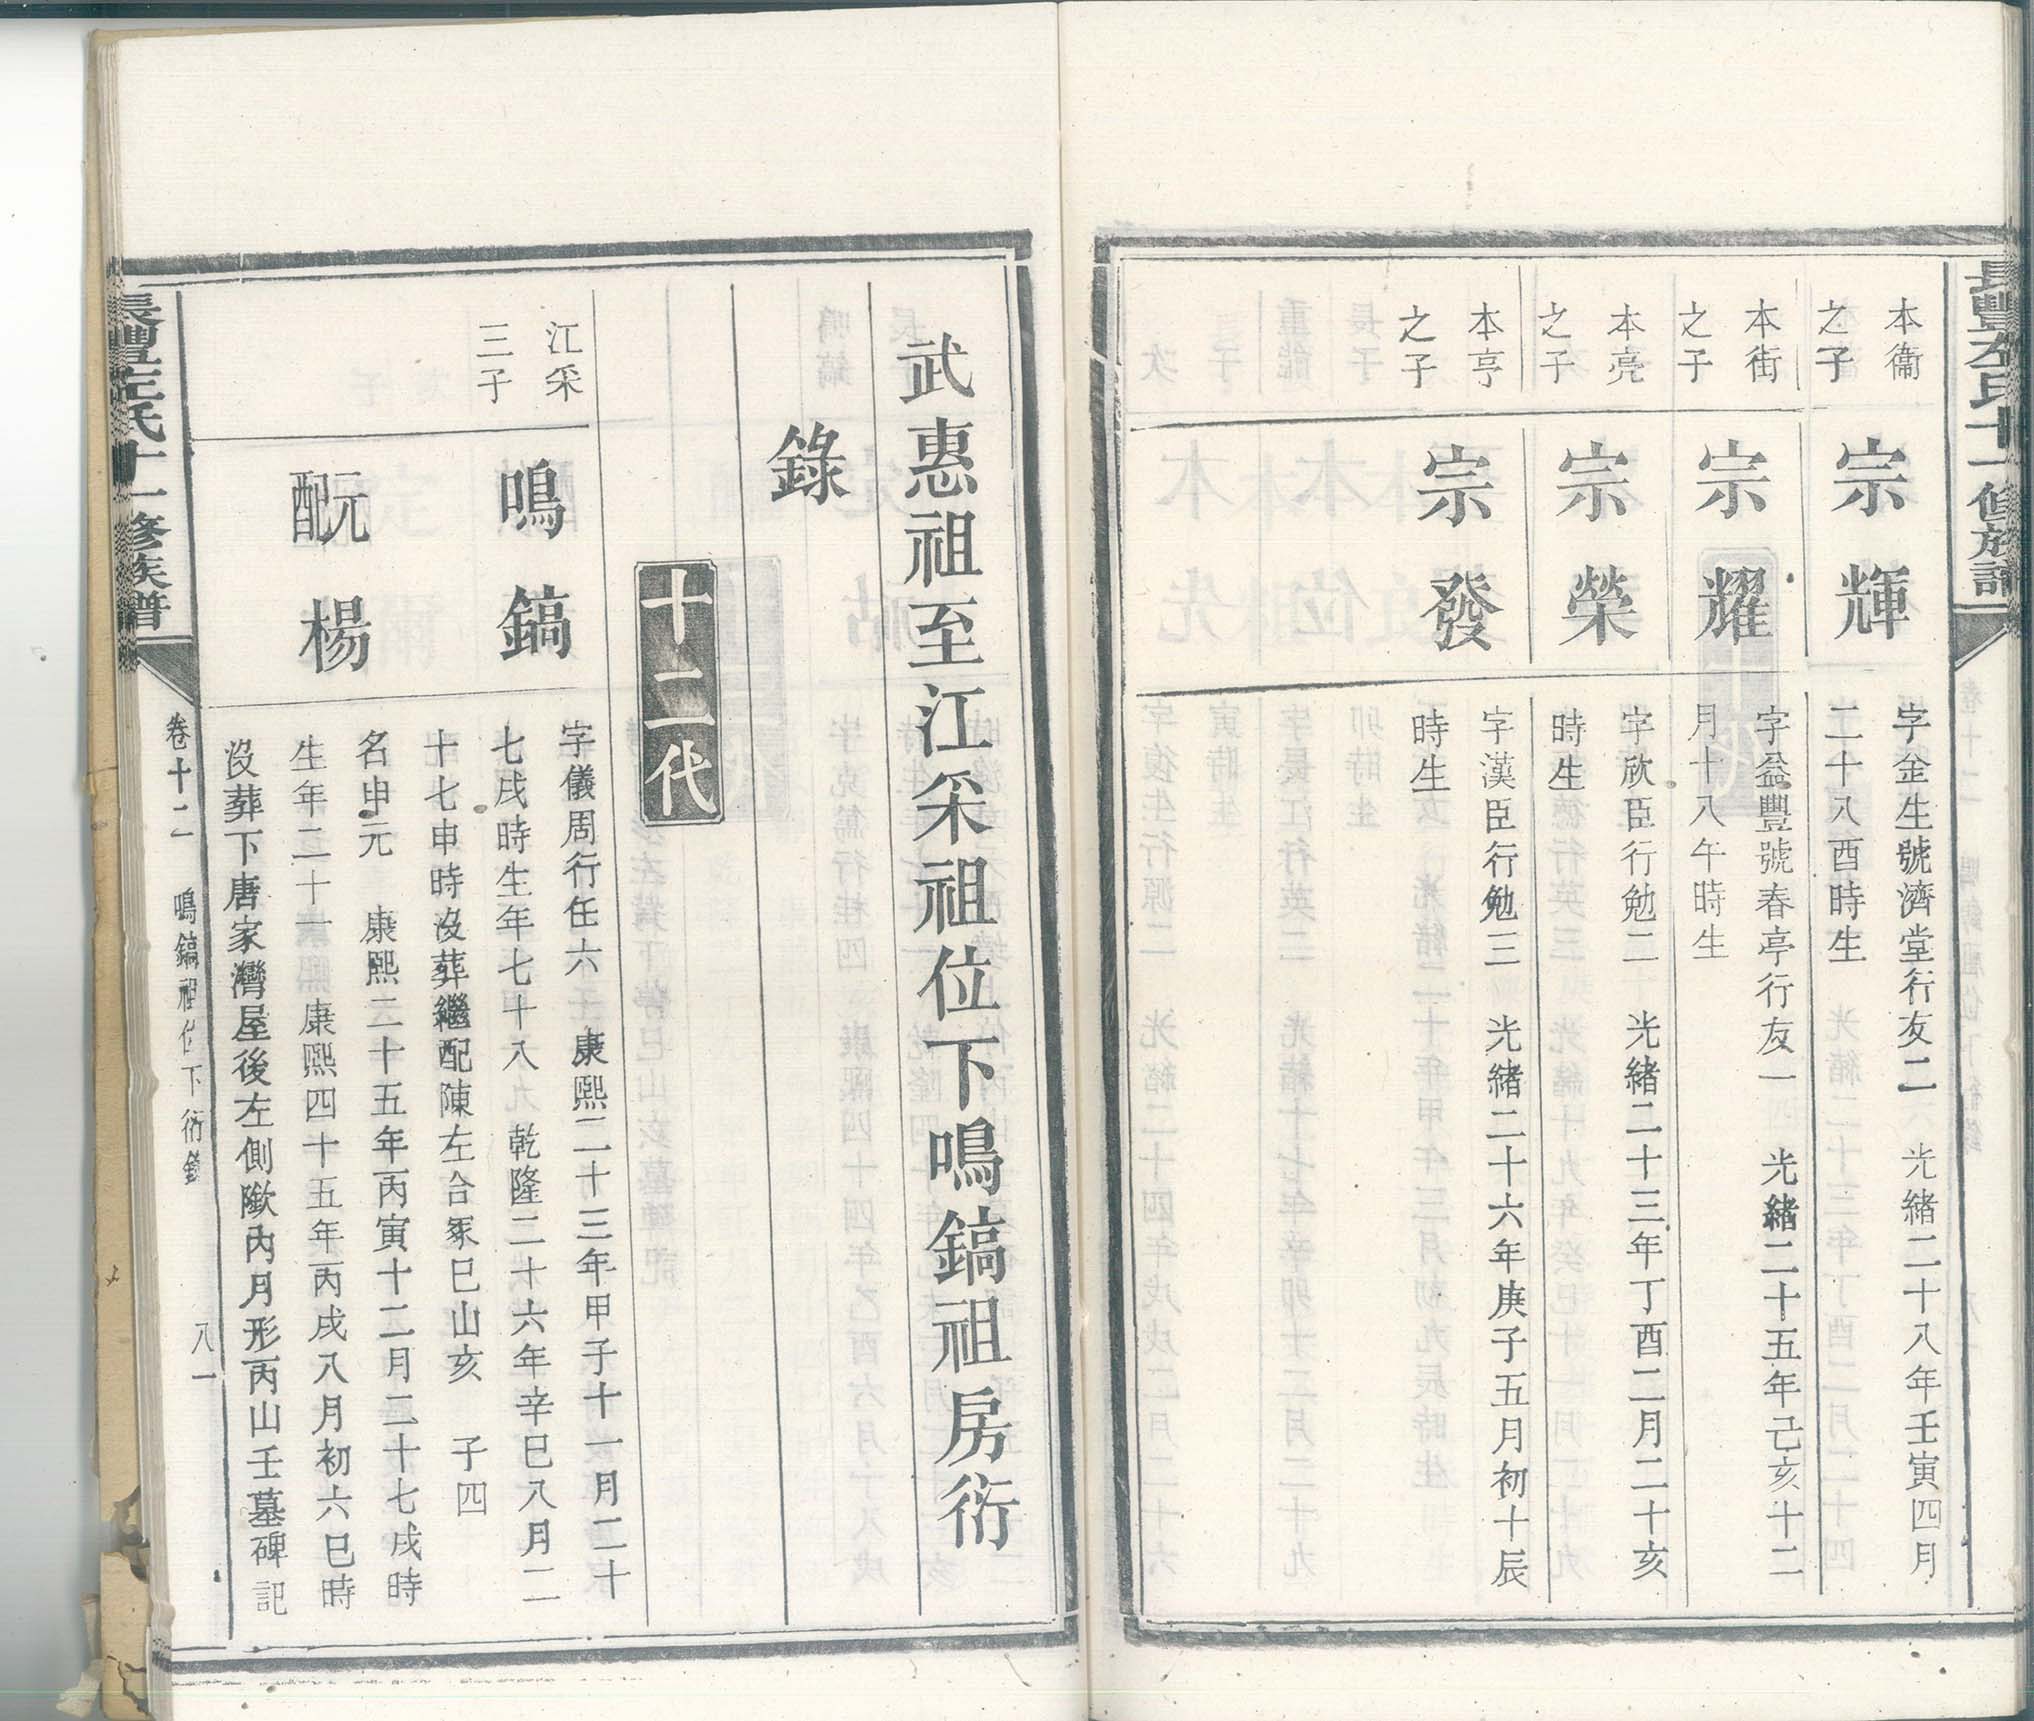 長豐左氏十一修族譜
本衞
之子
宗輝
字金生號濟堂行友二　光緒二十八年壬寅四月
二十八酉時生
本街
之子
宗耀
字益豐號春亭行友一　光緒二十五年己亥十二
月十八午時生
本亮
之子
宗榮
字欣臣行勉二　光緒二十三年丁酉二月二十亥
時生
本亨
之子
宗發
字漢臣行勉三　光緒二十六年庚子五月初十辰
時生
武惠祖至江采祖位下鳴鎬祖房衍
錄
十二代
江采
三子
鳴鎬
字儀周行任六　康熙二十三年甲子十一月二十
七戌時生年七十八　乾隆二十六年辛巳八月二
十七申時沒葬繼配陳左合冢巳山亥　子四
元配
楊
名申元　康熙二十五年丙寅十二月二十七戌時
生年二十一　康熙四十五年丙戌八月初六巳時
沒葬下唐家灣屋後左側歟內月形丙山壬墓碑記
長豐左氏十一修族譜
卷十二　鳴鎬祖位下衍錄　八一